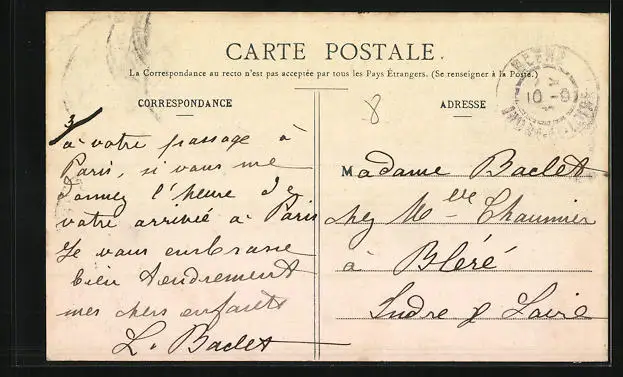 CARTE POSTALE
La Correspondance au recto n'est pas acceptée par tous les Pays Étrangers. (Se renseigner à la Poste.)
CORRESPONDANCE
3/
à votre passage à
Paris, si vous me
donnez l'heure de
votre arrivée à Paris
Je vous embrasse
bien tendrement
mes chers enfants
L. Baclet
ADRESSE
8
Madame Baclet
chez Mlle Thaumier
à Bléré
Indre & Loire
10-9
INDRE-ET-LOIRE